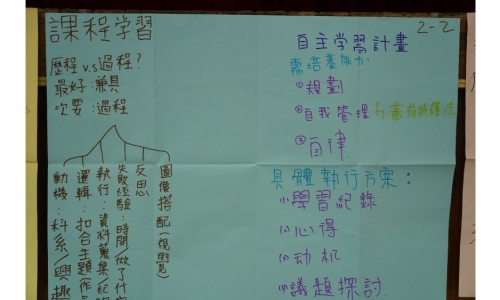 課程学習
歷程 v.s 過程?
最好:兼具
次要:過程
動機:科系/興趣
邏輯:扣合主題
執行:資料蒐集
失敗經驗:時間/做了什
反思
圖像搭配
2-2
自主学習計畫
需培養能力
①規劃
②自我管理 番茄時鐘法
③自律
具體執行方案:
學習紀錄
心得
动机
議題探討